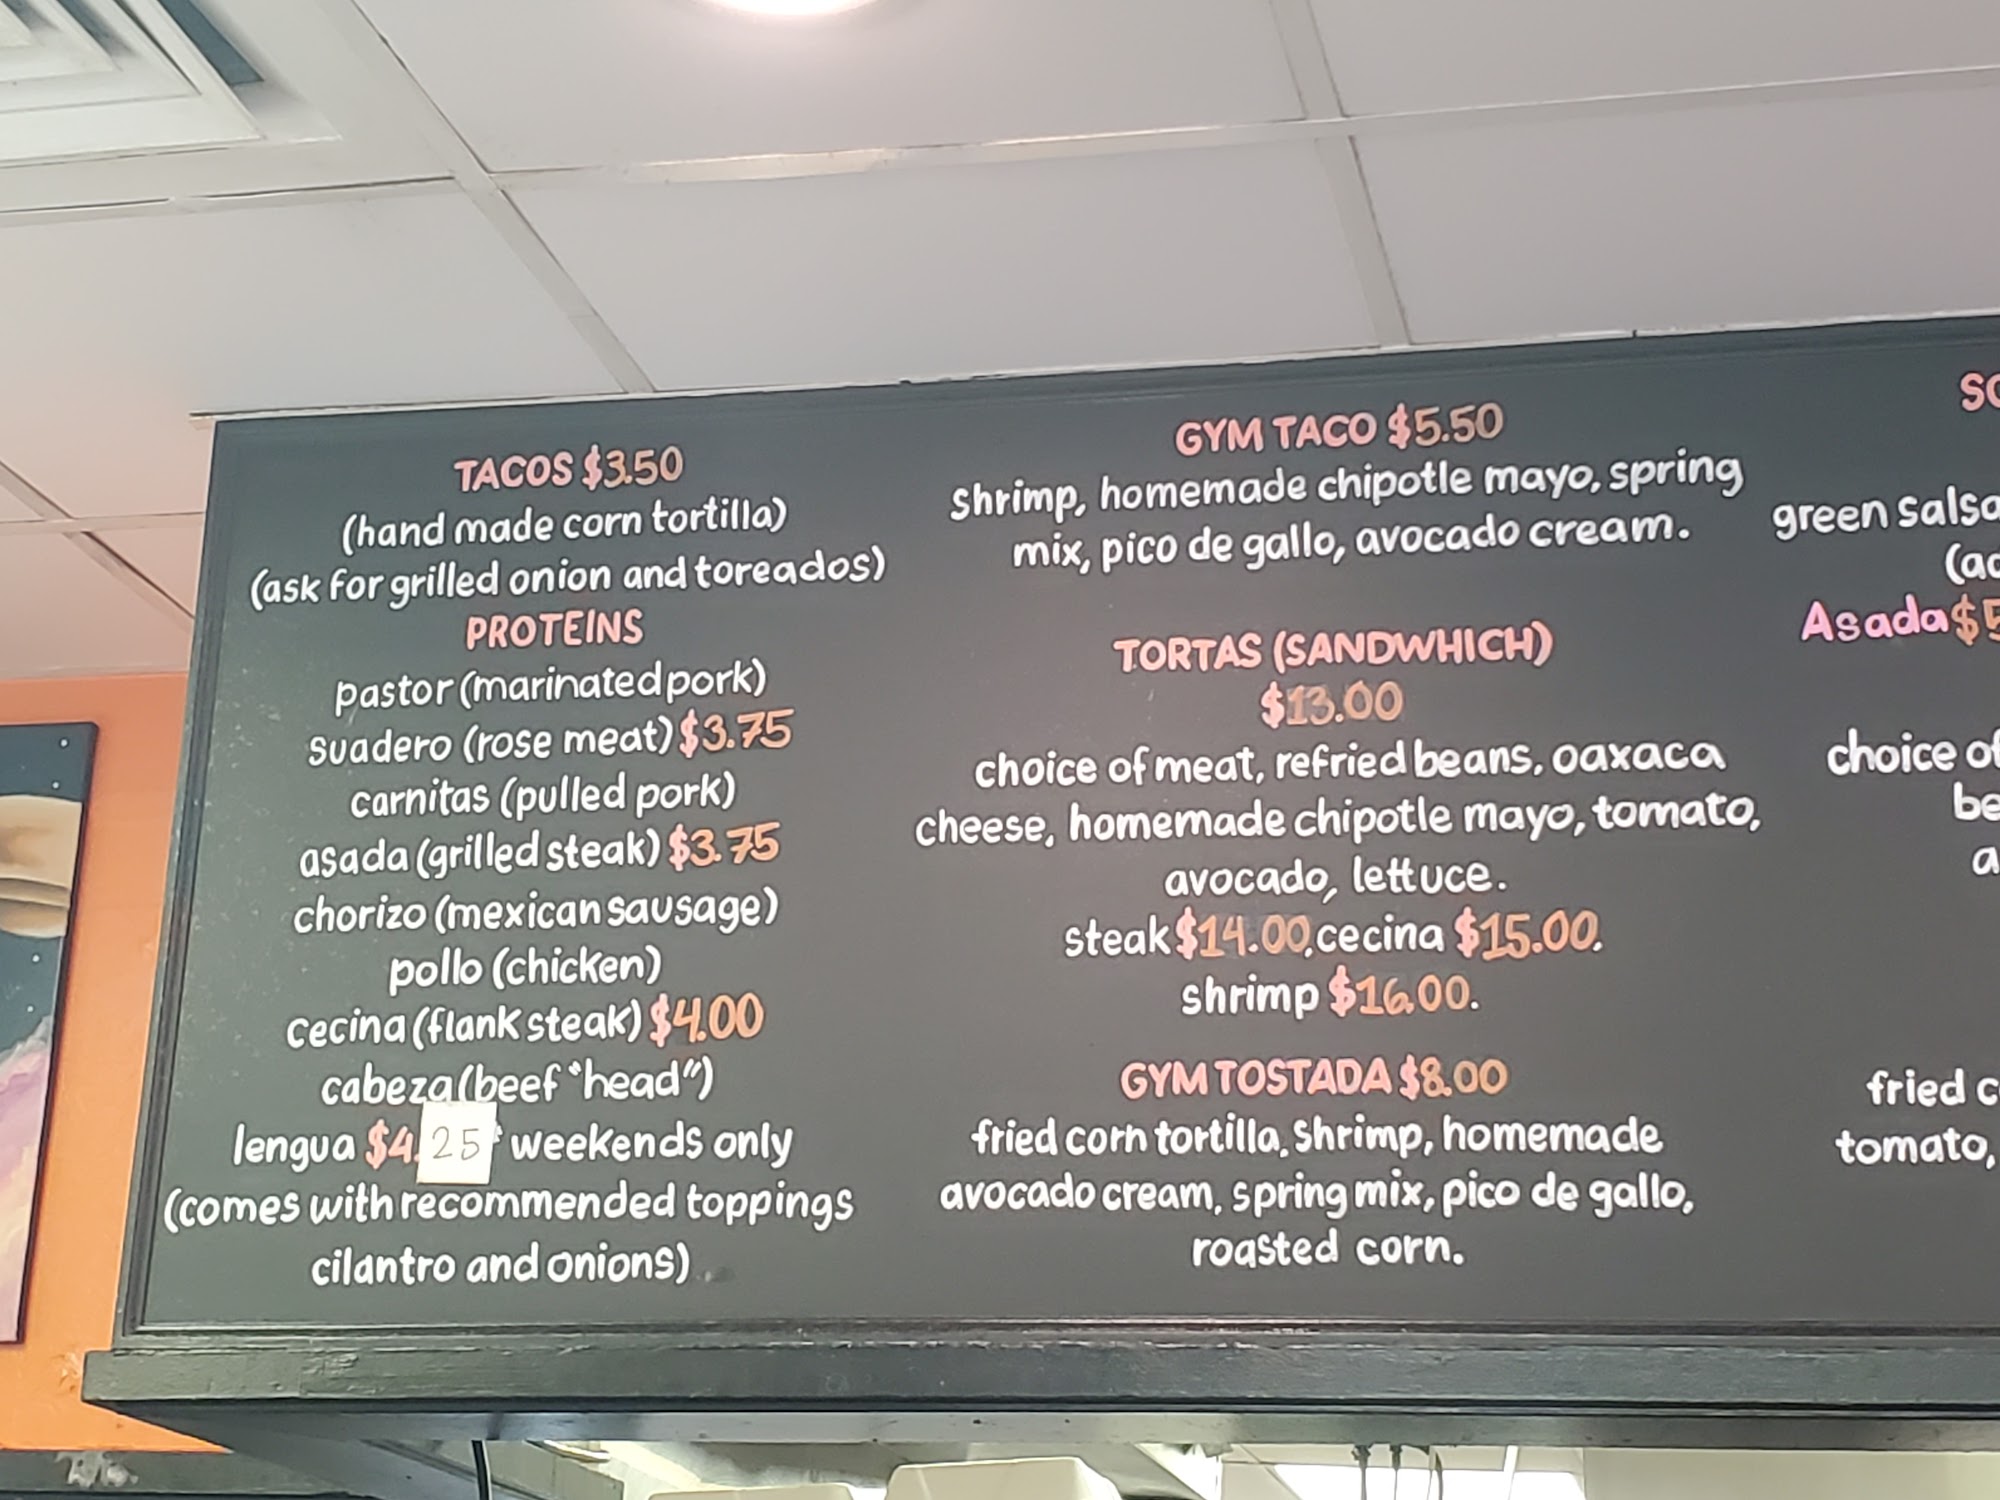 TACOS $3.50
(hand made corn tortilla)
(ask for grilled onion and toreados)
PROTEINS
pastor (marinated pork)
suadero (rose meat) $3.75
carnitas (pulled pork)
asada (grilled steak) $3.75
chorizo (mexican sausage)
pollo (chicken)
cecina (flank steak) $4.00
cabeza (beef "head")
lengua $4.25* weekends only
(comes with recommended toppings
cilantro and onions)
GYM TACO $5.50
Shrimp, homemade chipotle mayo, spring
mix, pico de gallo, avocado cream.
TORTAS (SANDWHICH)
$13.00
choice of meat, refried beans, oaxaca
cheese, homemade chipotle mayo, tomato,
avocado, lettuce.
steak $14.00, cecina $15.00.
shrimp $16.00.
GYM TOSTADA $8.00
fried corn tortilla, Shrimp, homemade
avocado cream, spring mix, pico de gallo,
roasted corn.
green salsa
Asada $5
choice of
fried
tomato,